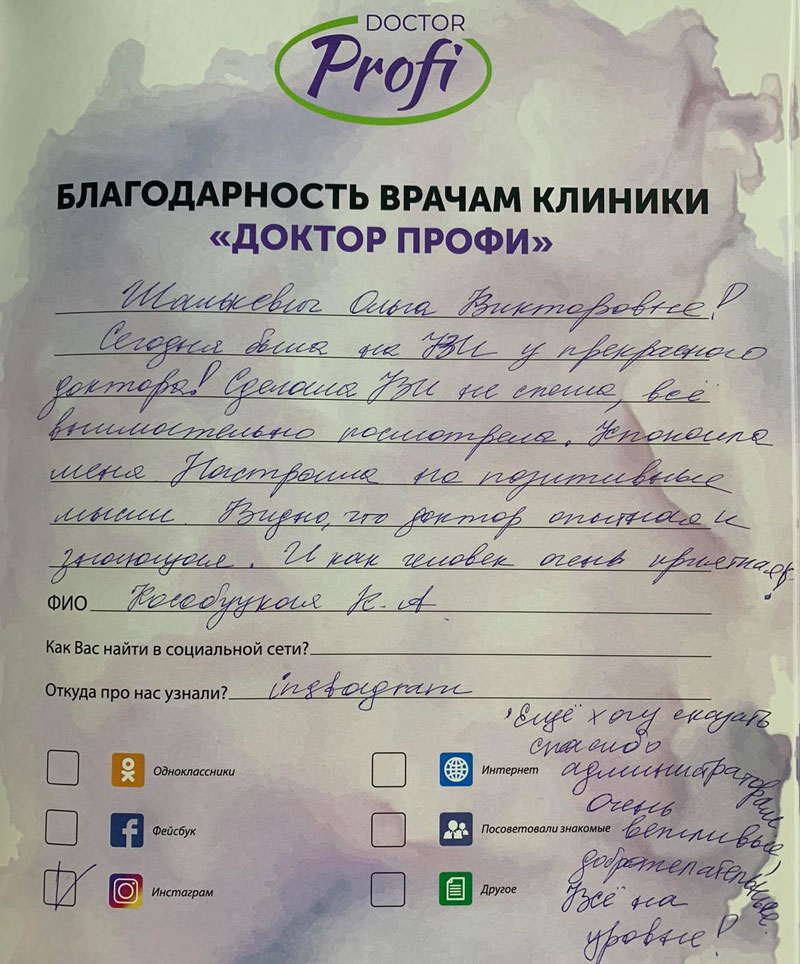 DOCTOR
Profi
БЛАГОДАРНОСТЬ ВРАЧАМ КЛИНИКИ
«ДОКТОР ПРОФИ»
Ольга Викторовне!
Сегодня была на УЗИ у прекрасного
доктора! Сделала УЗИ не спеша, всё
внимательно посмотрела. Успокоила
меня Настроила на позитивные
мысли. Видно, что доктор опытная и
знающая. И как человек очень приятная!
ФИО Кособуцкая К. А
Как Вас найти в социальной сети?
Откуда про нас узнали? instagram
Ещё хочу сказать
спасибо
администраторам
очень
вежливые,
доброжелательные.
Всё на
уровне!
Одноклассники
Интернет
Фейсбук
Посоветовали знакомые
Инстаграм
Другое